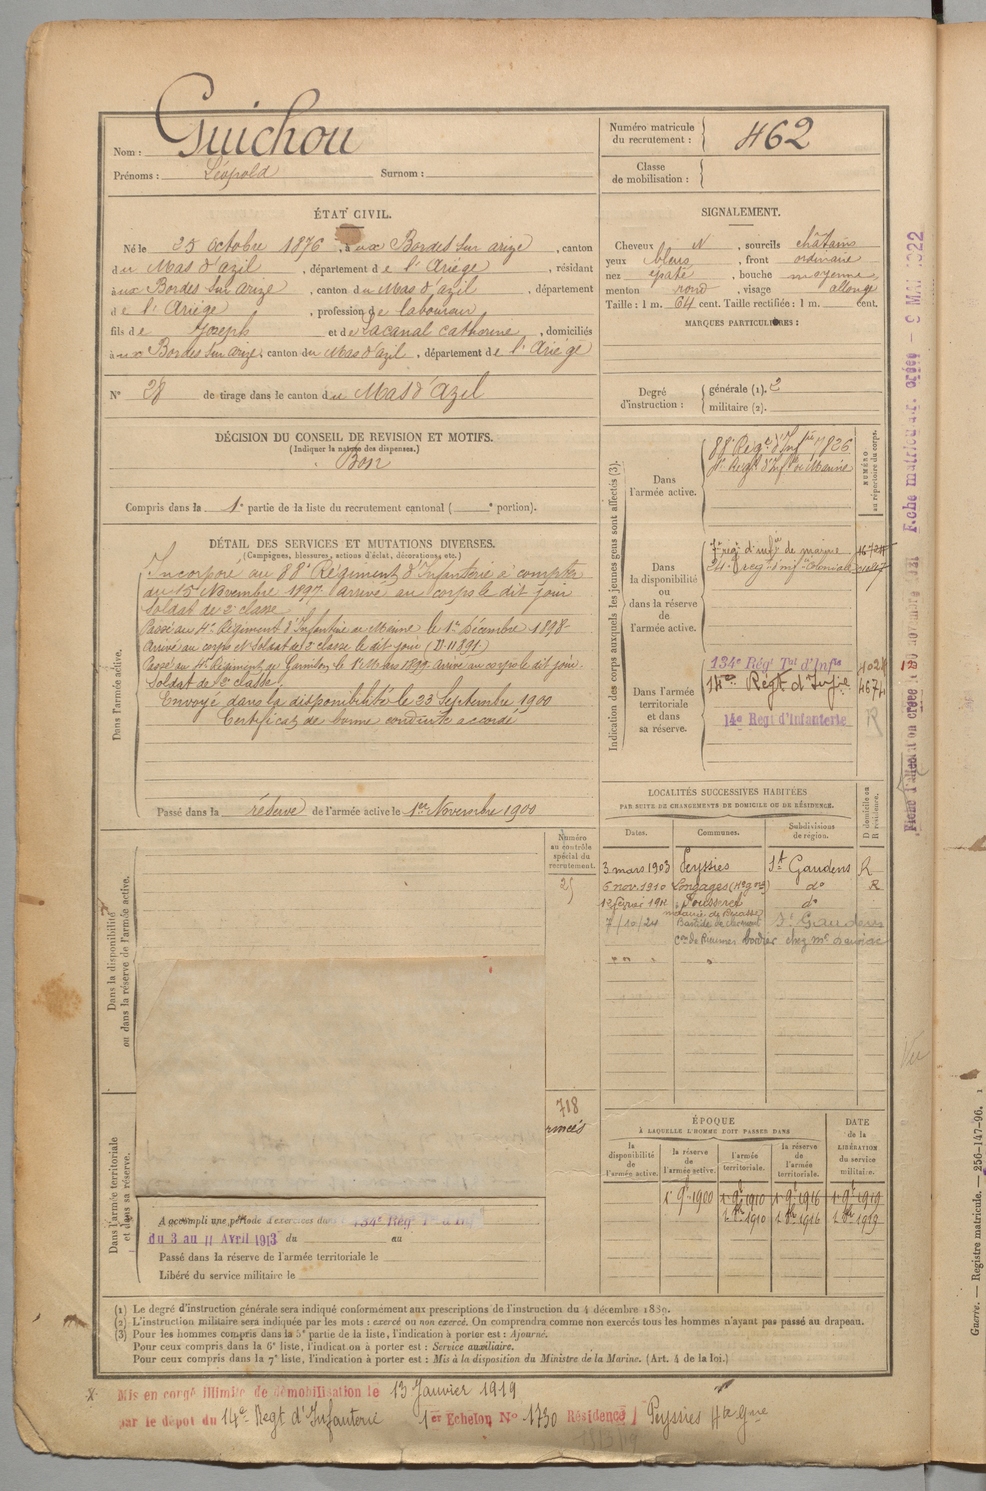 Nom : Guichou
Prénoms : Léopold Surnom :
Numéro matricule du recrutement : 462
Classe de mobilisation :
ÉTAT CIVIL.
Né le 25 Octobre 1876, à aux Bordes sur arize, canton
du Mas d'azil, département de l'Ariège, résidant
à aux Bordes sur arize, canton du Mas d'azil, département
de l'Ariège, profession de laboureur
fils de Joseph et de Lacanal Catherine, domiciliés
à aux Bordes sur arize, canton du Mas d'azil, département de l'Ariège
N° 28 de tirage dans le canton du Mas d'Azil
SIGNALEMENT.
Cheveux N, sourcils châtains
yeux bleus, front ordinaire
nez épaté, bouche moyenne,
menton rond, visage allongé
Taille : 1 m. 64 cent. Taille rectifiée : 1 m. cent.
MARQUES PARTICULIÈRES :
Degré d'instruction : générale (1). 2
militaire (2).
DÉCISION DU CONSEIL DE REVISION ET MOTIFS.
(Indiquer la nature des dispenses.)
Bon
Compris dans la 1e partie de la liste du recrutement cantonal ( e portion).
DÉTAIL DES SERVICES ET MUTATIONS DIVERSES.
(Campagnes, blessures, actions d'éclat, décorations, etc.)
Dans l'armée active.
Incorporé au 88e Régiment d'Infanterie à compter
du 15 Novembre 1897 arrivé au corps le dit jour
Soldat de 2e classe
Passé au 4e Régiment d'Infanterie de Marine le 1er Décembre 1898
Arrivé au corps et Soldat de 2e classe le dit jour
Passé au 4e Régiment de 1899 arrivé au corps le dit jour.
Soldat de 2e classe.
Envoyé dans la disponibilité le 23 Septembre 1900
Certificat de bonne conduite accordé
Passé dans la réserve de l'armée active le 1er Novembre 1900
Indication des corps auxquels les jeunes gens sont affectés (3).
NUMÉRO au répertoire du corps.
Dans l'armée active.
88e Régt d'Infrie 7826
4e Régt d'Infie de Marine
Dans la disponibilité ou dans la réserve de l'armée active.
7e régt d'infrie de marine
24e régt d'infie Coloniale
Dans l'armée territoriale et dans sa réserve.
134e Régt Tal d'Infie
14me Régt d'Infie 4674
14e Régt d'Infanterie
R
Fiche matricule créée - 9 MAI 1922
LOCALITÉS SUCCESSIVES HABITÉES
PAR SUITE DE CHANGEMENTS DE DOMICILE OU DE RÉSIDENCE.
D domicile ou R résidence.
Dates. Communes. Subdivisions de région.
3 mars 1903 Peyssies St Gaudens R
6 nov. 1910 Longages (Hte Gne) do R
do
7/10/24 St Gaudens
Dans la disponibilité ou dans la réserve de l'armée active.
Numéro au contrôle spécial du recrutement.
718
Dans l'armée territoriale et dans sa réserve.
A accompli une période d'exercices dans 134e Régt
du 3 au 11 Avril 1913 du au
Passé dans la réserve de l'armée territoriale le
Libéré du service militaire le
ÉPOQUE
À LAQUELLE L'HOMME DOIT PASSER DANS
DATE de la LIBÉRATION du service militaire.
la disponibilité de l'armée active. la réserve de l'armée active. l'armée territoriale. la réserve de l'armée territoriale.
1er 9bre 1900 1er 9bre 1910 1er 9bre 1916 1er 9bre 1919
(1) Le degré d'instruction générale sera indiqué conformément aux prescriptions de l'instruction du 4 décembre 1889.
(2) L'instruction militaire sera indiquée par les mots : exercé ou non exercé. On comprendra comme non exercés tous les hommes n'ayant pas passé au drapeau.
(3) Pour les hommes compris dans la 5e partie de la liste, l'indication à porter est : Ajourné.
Pour ceux compris dans la 6e liste, l'indication à porter est : Service auxiliaire.
Pour ceux compris dans la 7e liste, l'indication à porter est : Mis à la disposition du Ministre de la Marine. (Art. 4 de la loi.)
Mis en congé illimité de démobilisation le 13 Janvier 1919
par le dépôt du 14e Régt d'Infanterie 1er Echelon N° 1730 Résidence Peyssies Hte Gne
Guerre. — Registre matricule. — 256-147-96.
Vu